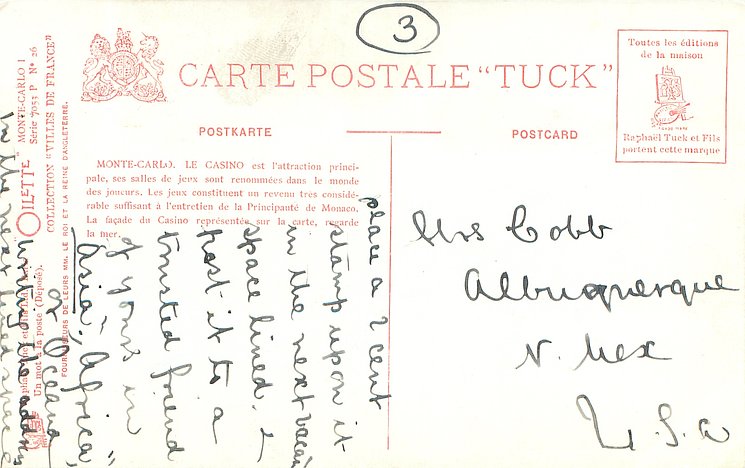 3
CARTE POSTALE "TUCK"
Toutes les éditions
de la maison
TRADE MARK
Raphaël Tuck et Fils
portent cette marque
POSTKARTE
POSTCARD
MONTE-CARLO. LE CASINO est l'attraction princi-
pale, ses salles de jeux sont renommées dans le monde
des joueurs. Les jeux constituent un revenu très considé-
rable suffisant à l'entretien de la Principauté de Monaco.
La façade du Casino représentée sur la carte, regarde
la mer.
OILETTE"
MONTE-CARLO I
Série 7053 P Nº 26
COLLECTION "VILLES DE FRANCE"
FOURNISSEURS DE LEURS MM. LE ROI ET LA REINE D'ANGLETERRE.
Un mot à la poste (Déposé).
place a 2 cent
stamp upon it
in the next vacant
space lined, &
post it to a
trusted friend
of yours in
"Asia", "Africa",
or Oceana
writing the address
in the next lined space
Mrs Cobb
Albuquerque
N. Mex
U.S.a